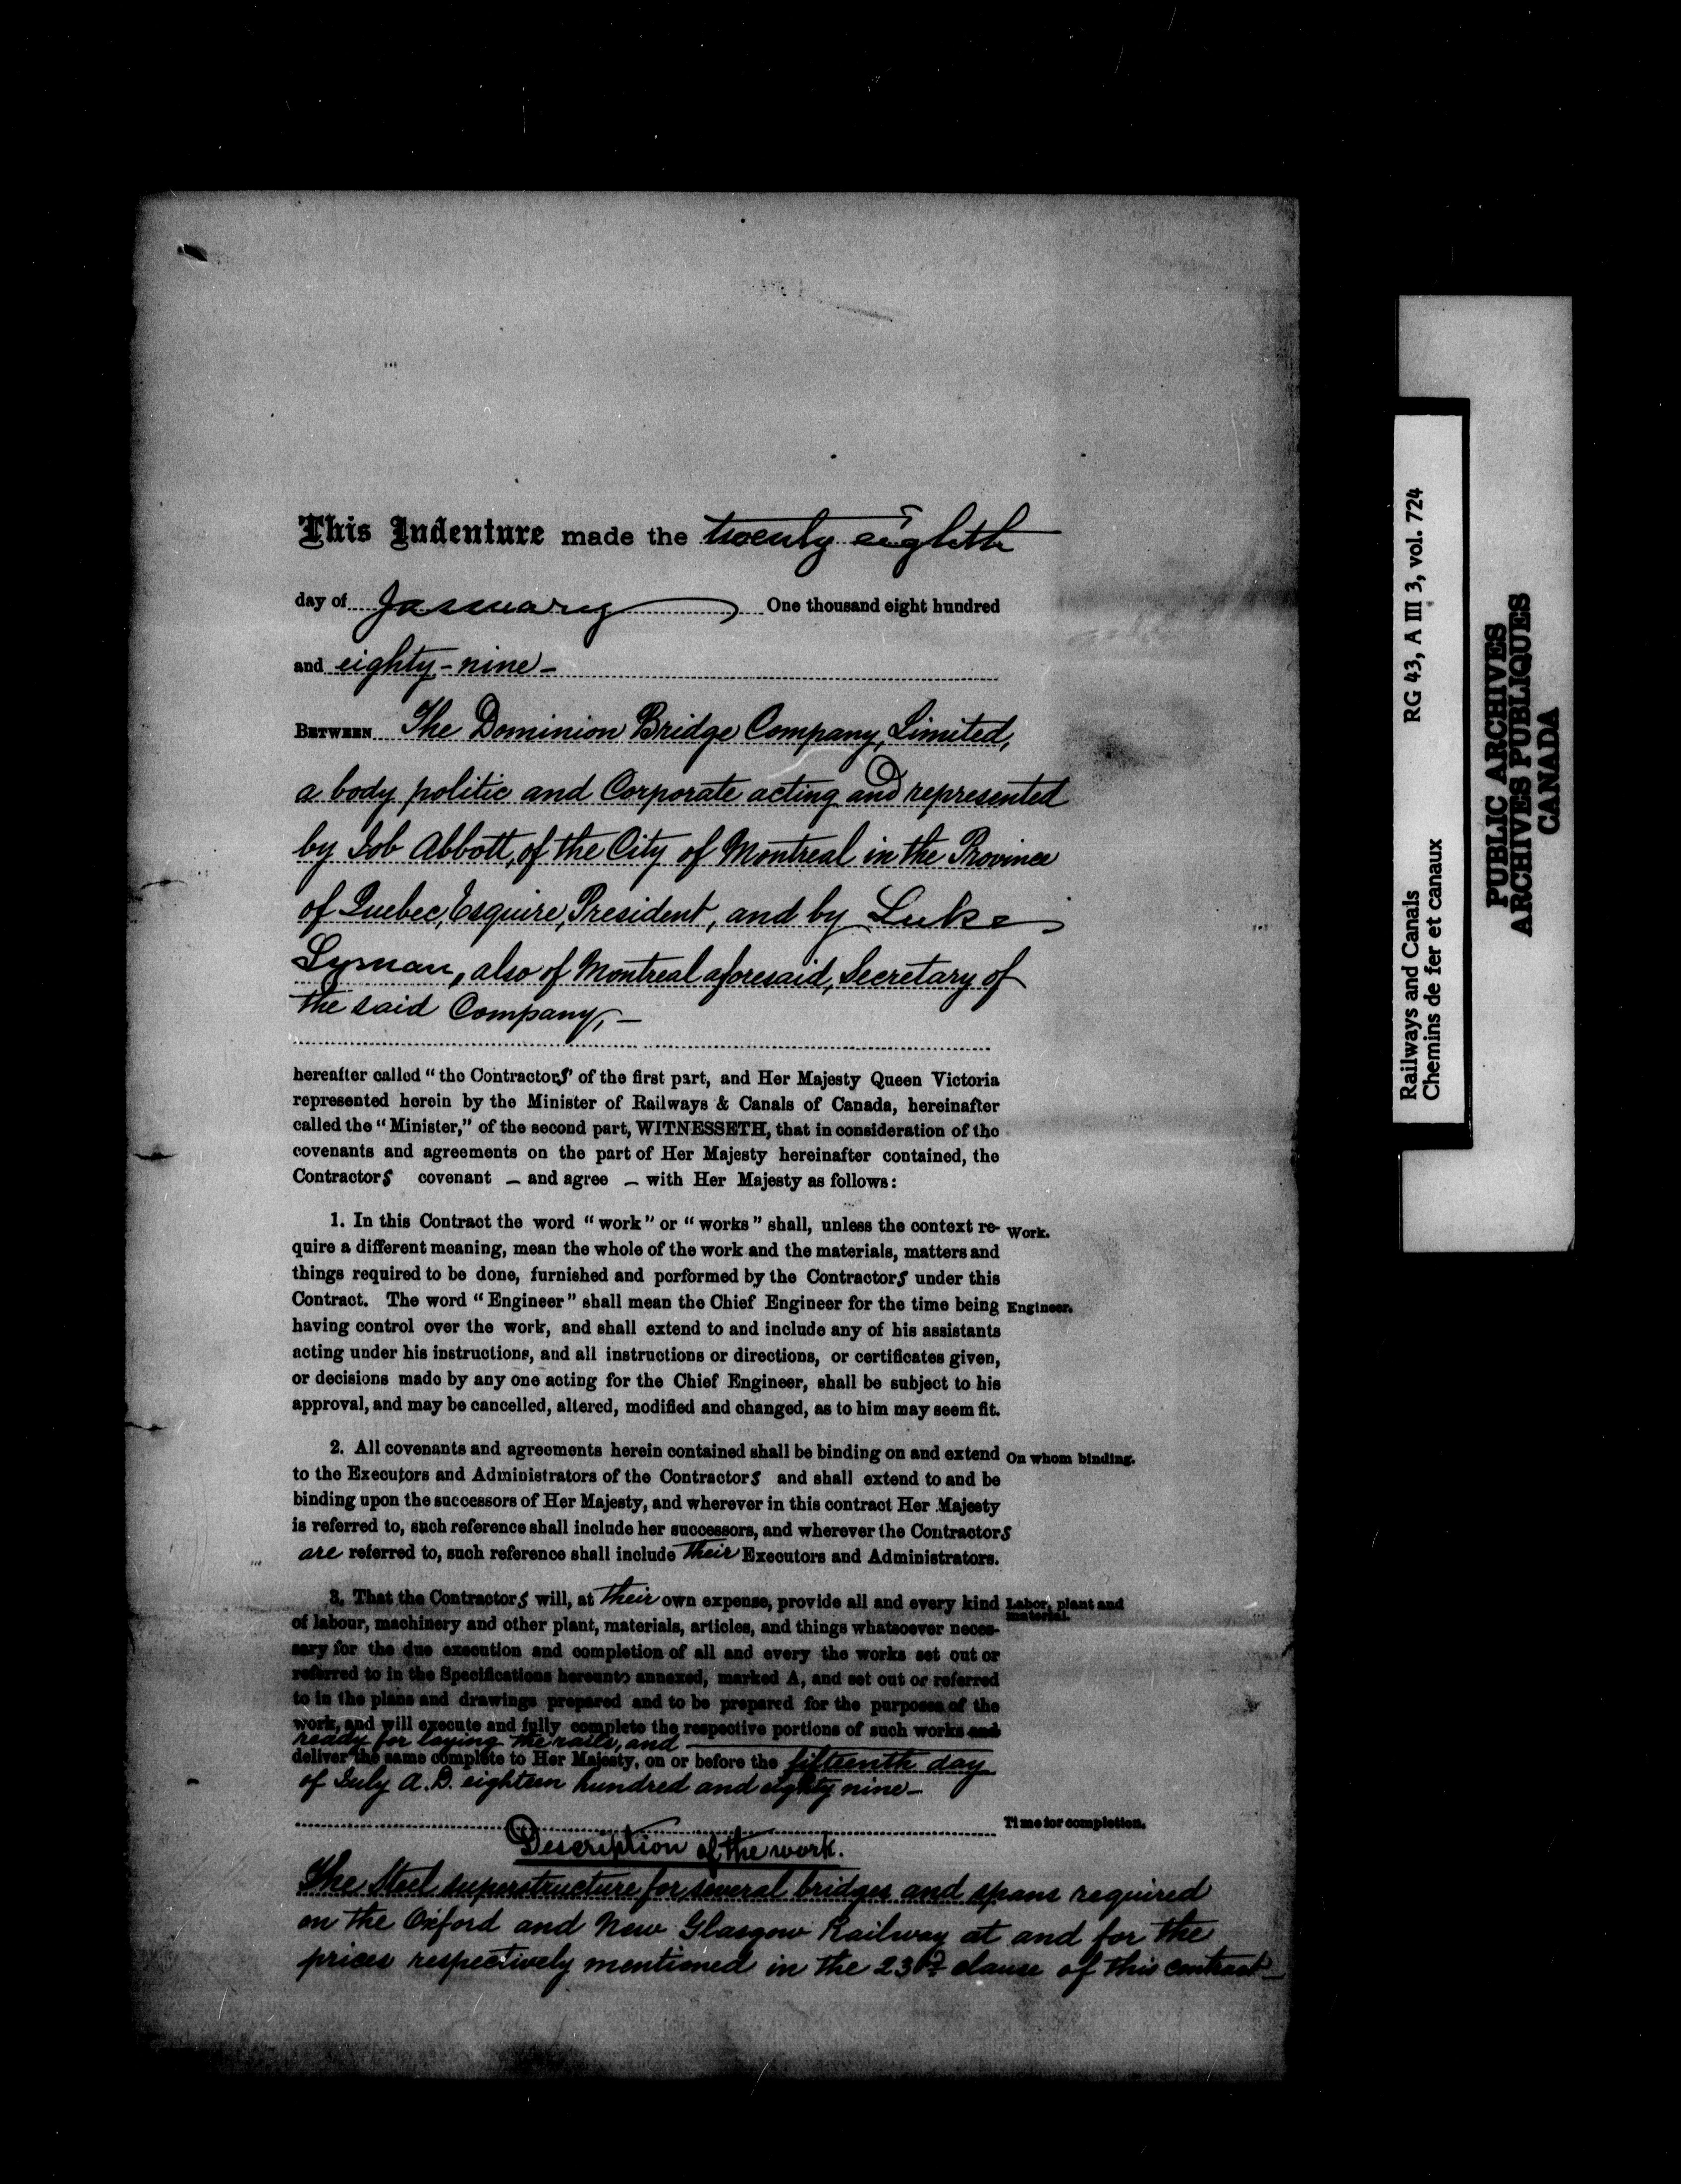 This Indenture made the twenty eighth
day of January One thousand eight hundred
and eighty-nine-
BETWEEN The Dominion Bridge Company, Limited,
a body politic and Corporate acting and represented
by Job Abbott, of the City of Montreal in the Province
of Quebec, Esquire, President, and by Luke
Lyman, also of Montreal aforesaid, Secretary of
the said Company, -
hereafter called "the Contractors" of the first part, and Her Majesty Queen Victoria
represented herein by the Minister of Railways & Canals of Canada, hereinafter
called the "Minister," of the second part, WITNESSETH, that in consideration of the
covenants and agreements on the part of Her Majesty hereinafter contained, the
Contractors covenant - and agree - with Her Majesty as follows:
1. In this Contract the word "work" or "works" shall, unless the context re- Work.
quire a different meaning, mean the whole of the work and the materials, matters and
things required to be done, furnished and performed by the Contractors under this
Contract. The word "Engineer" shall mean the Chief Engineer for the time being Engineer.
having control over the work, and shall extend to and include any of his assistants
acting under his instructions, and all instructions or directions, or certificates given,
or decisions made by any one acting for the Chief Engineer, shall be subject to his
approval, and may be cancelled, altered, modified and changed, as to him may seem fit.
2. All covenants and agreements herein contained shall be binding on and extend On whom binding.
to the Executors and Administrators of the Contractors and shall extend to and be
binding upon the successors of Her Majesty, and wherever in this contract Her Majesty
is referred to, such reference shall include her successors, and wherever the Contractors
are referred to, such reference shall include their Executors and Administrators.
3. That the Contractors will, at their own expense, provide all and every kind Labor, plant and
material.
of labour, machinery and other plant, materials, articles, and things whatsoever neces-
sary for the due execution and completion of all and every the works set out or
referred to in the Specifications hereunto annexed, marked A, and set out or referred
to in the plans and drawings prepared and to be prepared for the purposes of the
work, and will execute and fully complete the respective portions of such works and
ready for laying the rails, and
deliver the same complete to Her Majesty, on or before the fifteenth day
of July A.D. eighteen hundred and eighty nine-
Time for completion.
Description of the work.
The Steel superstructure for several bridges and spans required
on the Oxford and New Glasgow Railway at and for the
prices respectively mentioned in the 23rd clause of this contract-
Railways and Canals RG 43, A III 3, vol. 724
Chemins de fer et canaux
PUBLIC ARCHIVES
ARCHIVES PUBLIQUES
CANADA